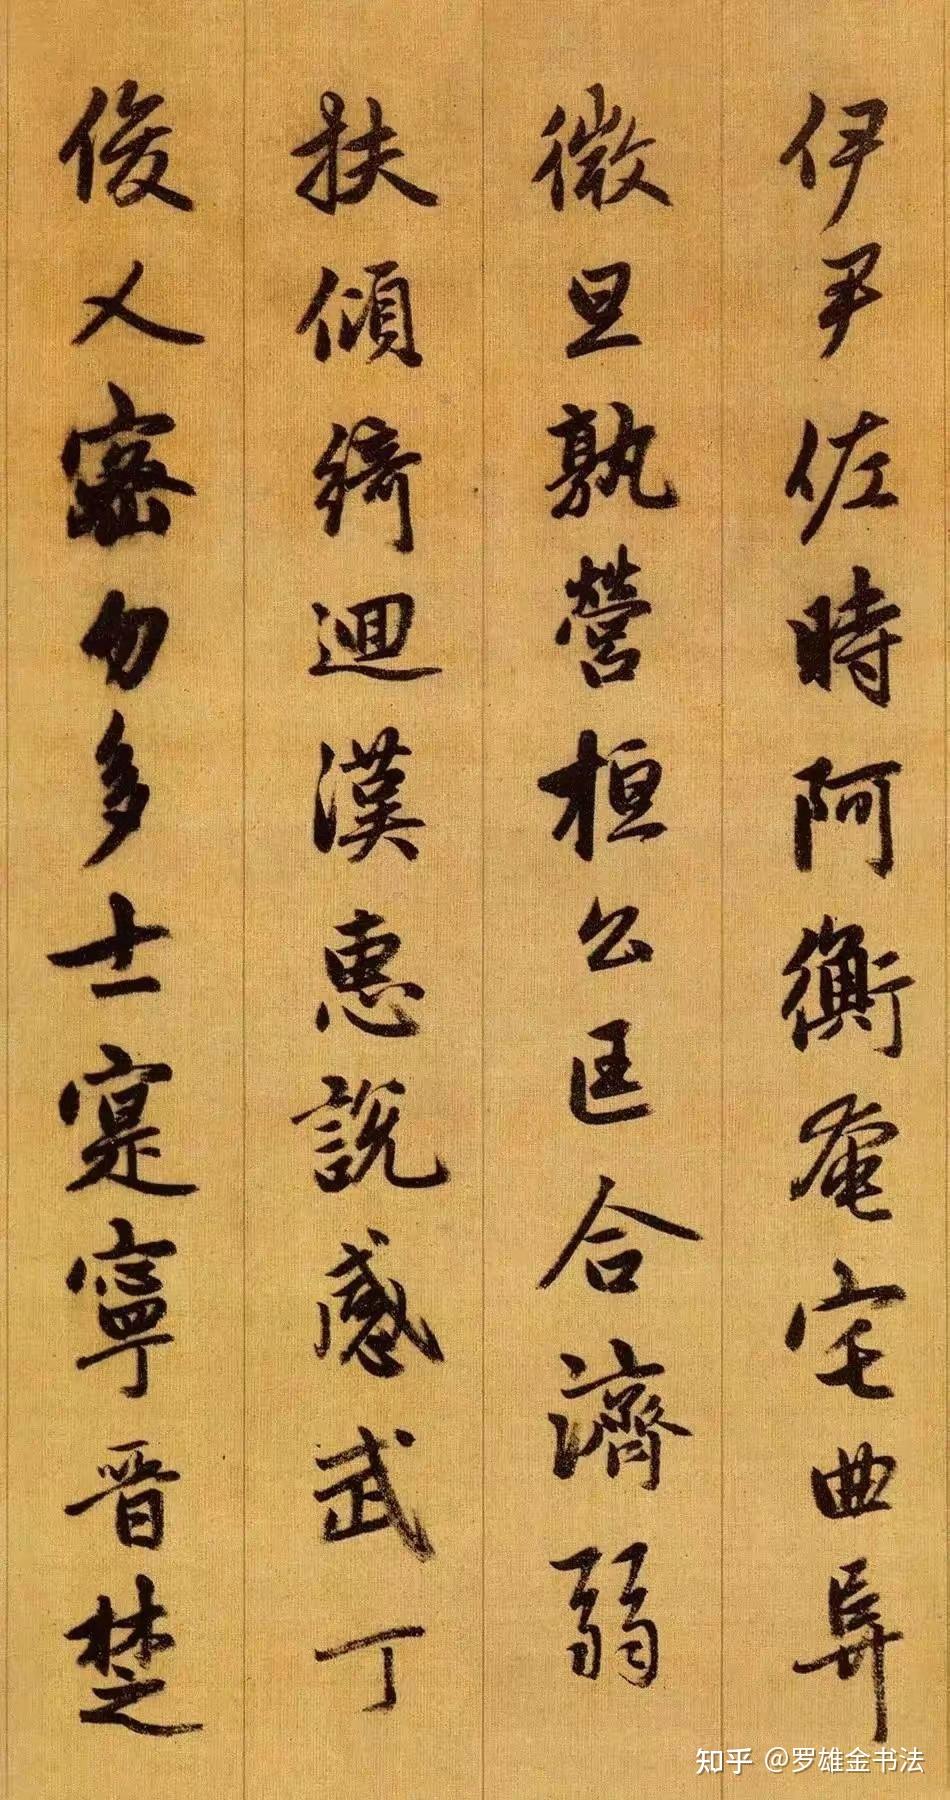 伊尹佐時阿衡奄宅曲阜
微旦孰營桓公匡合濟弱
扶傾綺迴漢惠說感武丁
俊乂密勿多士寔寧晉楚
知乎 @罗雄金书法